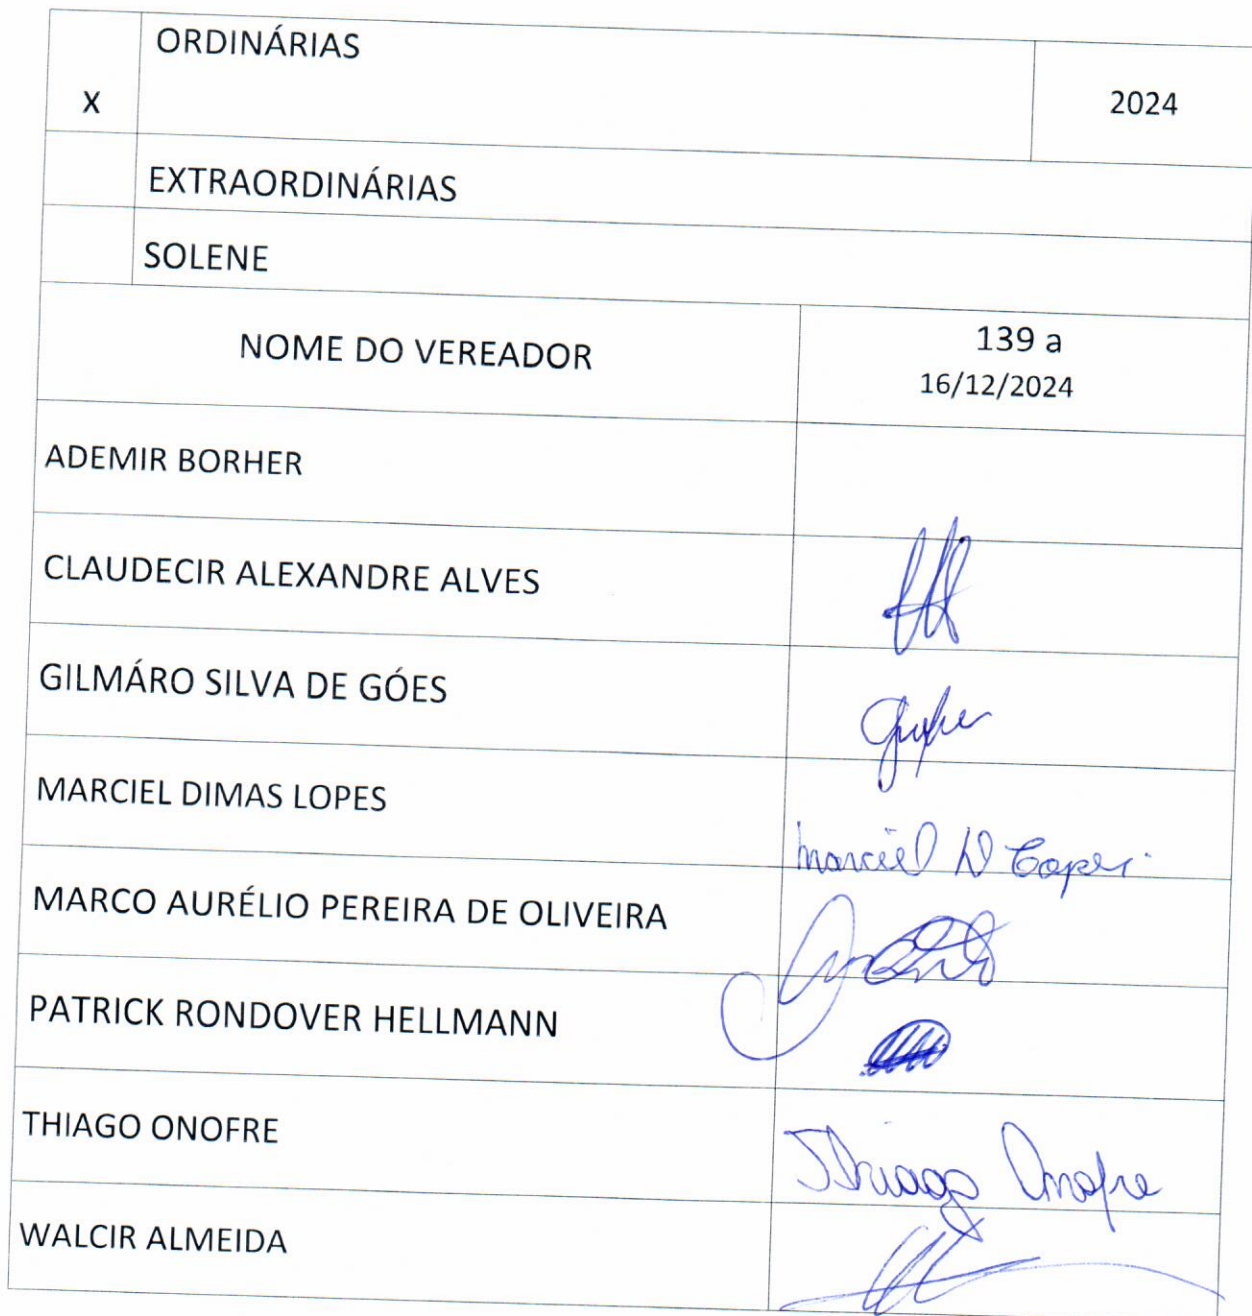 ORDINÁRIAS
X
2024
EXTRAORDINÁRIAS
SOLENE
NOME DO VEREADOR
139 a
16/12/2024
ADEMIR BORHER
CLAUDECIR ALEXANDRE ALVES
GILMÁRO SILVA DE GÓES
MARCIEL DIMAS LOPES
Marciel D Lopes
MARCO AURÉLIO PEREIRA DE OLIVEIRA
PATRICK RONDOVER HELLMANN
THIAGO ONOFRE
Thiago Onofre
WALCIR ALMEIDA